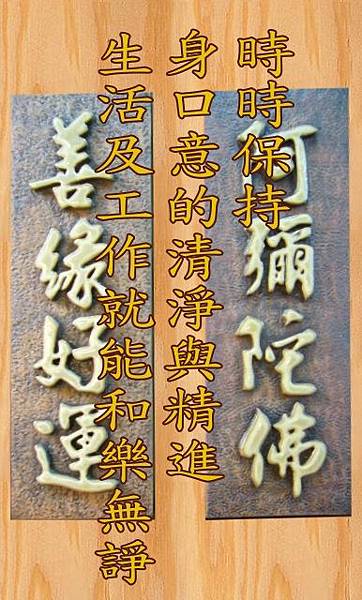 時時保持
身口意的清淨與精進
生活及工作就能和樂無諍
阿彌陀佛
善緣好運